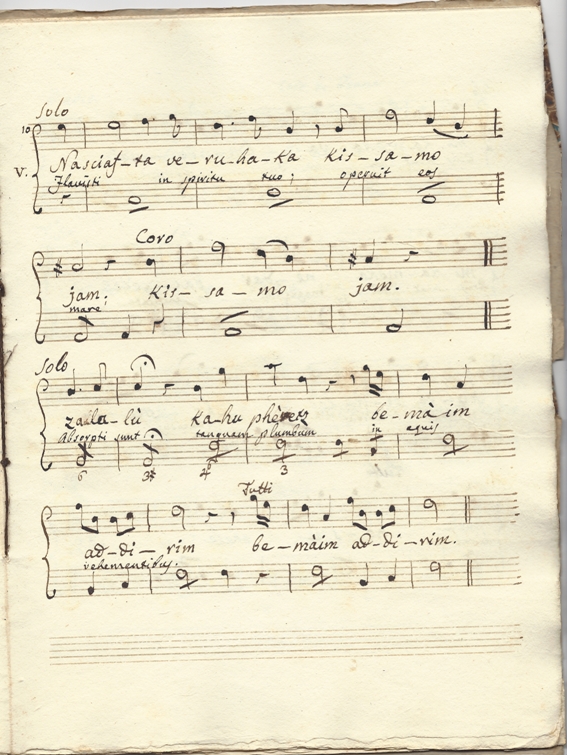 Solo
10
V. Nasciaf-ta ve-ru-ha-ka kis-sa-mo
Flavisti in spiritu tuo; operuit eos
Coro
jam; kis-sa-mo jam.
mare
Solo
zalla-lù ka-hu phèretz be-mà im
Absorpti sunt tanquam plumbum in aquis
6 3 4 3
Tutti
ad-di-rim be-màim ad-di-rim.
vehementibus.